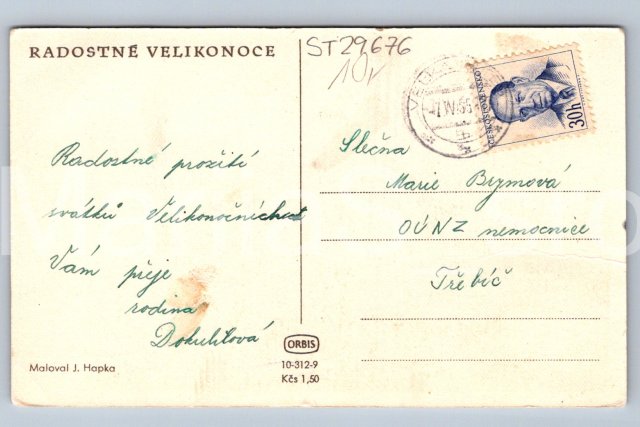 RADOSTNÉ VELIKONOCE
ST29676
10,-
30h
ČESKOSLOVENSKO
Radostné prožití
svátků Velikonočních
Vám přeje
rodina
Dokulilová
Slečna
Marie Brymová
OÚNZ nemocnice
Třebíč
Maloval J. Hapka
ORBIS
10-312-9
Kčs 1,50